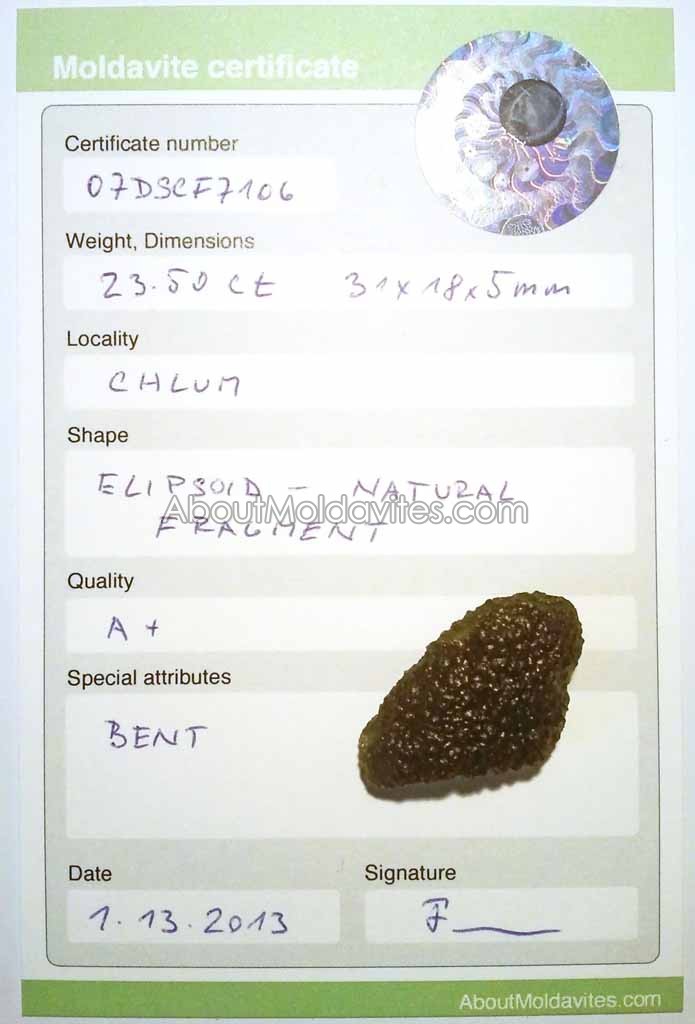 Moldavite certificate
Certificate number
07DSCF7106
Weight, Dimensions
23.50 ct 31x18x5mm
Locality
CHLUM
Shape
ELIPSOID - NATURAL
AboutMoldavites.com
FRAGMENT
Quality
A+
Special attributes
BENT
Date Signature
1.13.2013 F
AboutMoldavites.com